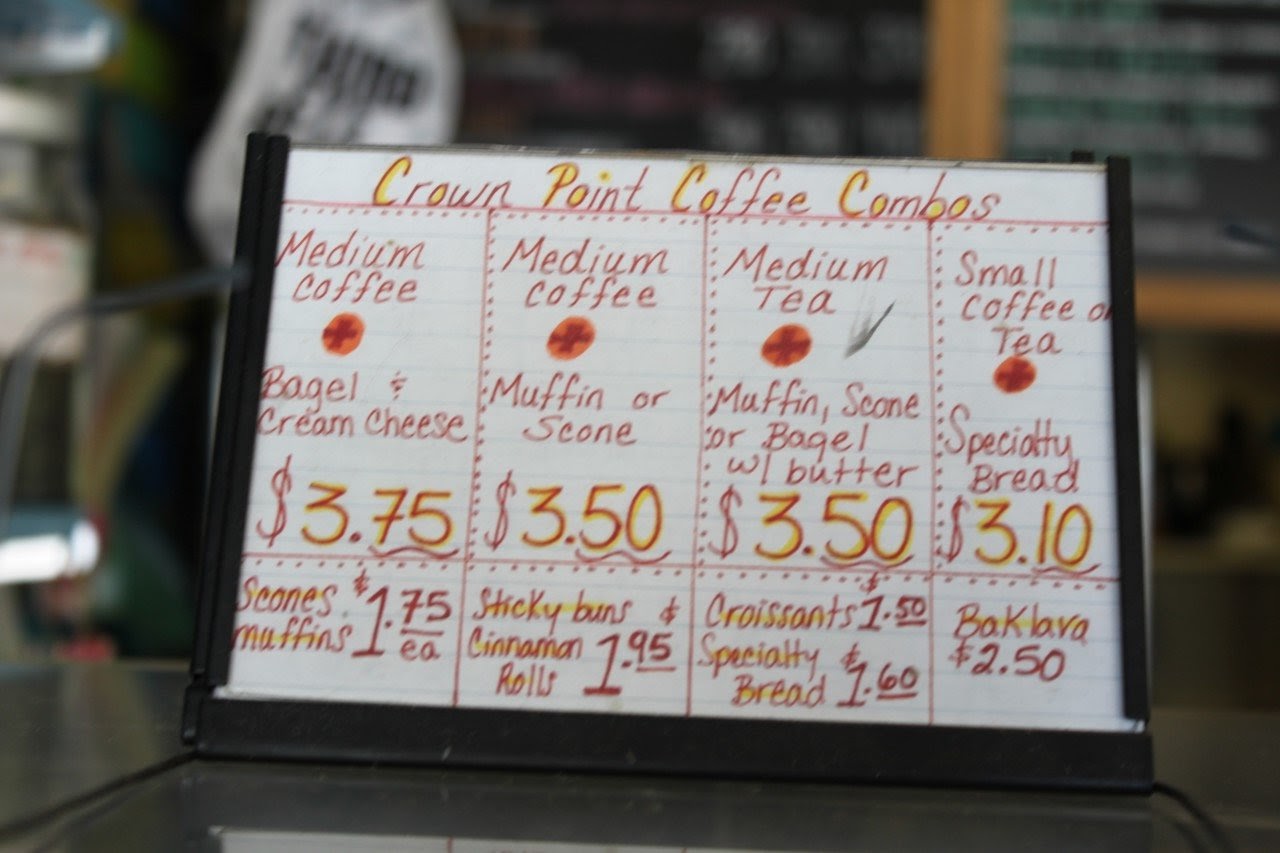 Crown Point Coffee Combos
Medium
coffee
+
Bagel &
Cream Cheese
$3.75
Medium
coffee
+
Muffin or
Scone
$3.50
Medium
Tea
+
Muffin, Scone
or Bagel
w/ butter
$3.50
Small
coffee or
Tea
+
Specialty
Bread
$3.10
Scones $1.75
muffins ea
Sticky buns &
Cinnamon 1.95
Rolls
Croissants $1.50
Specialty $1.60
Bread
Baklava
$2.50